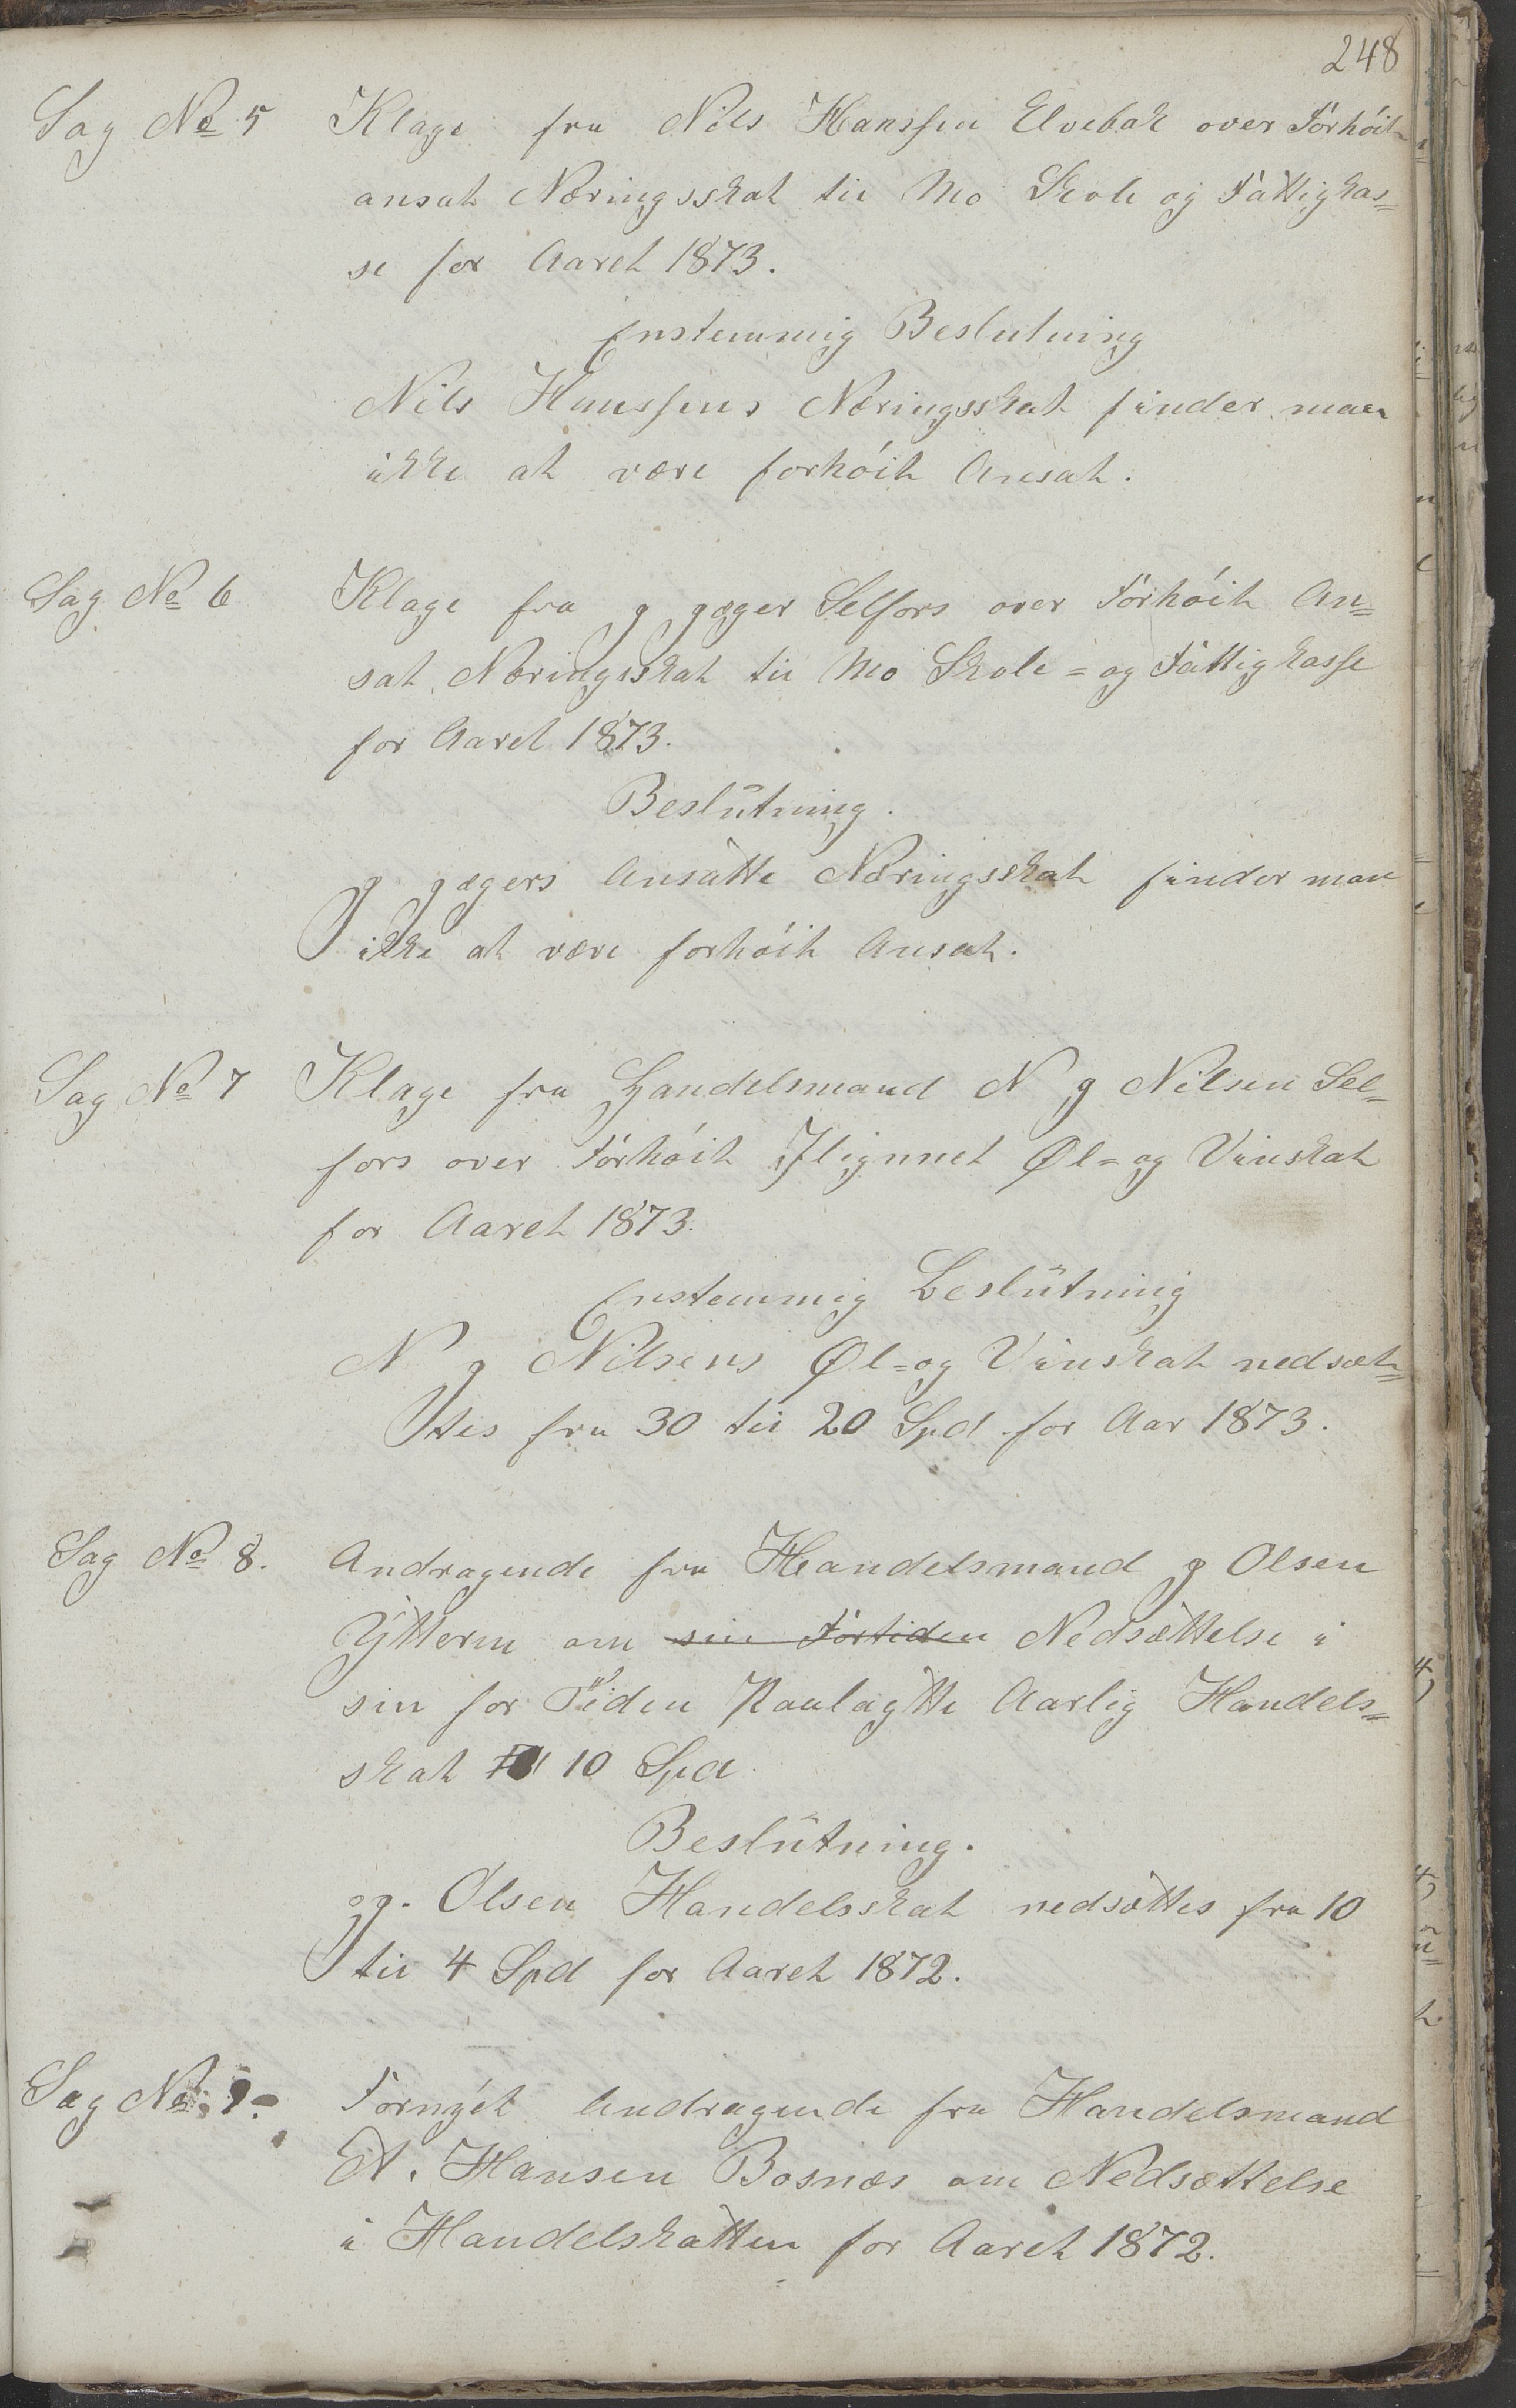 248
Sag No 5 Klage fra Nils Hanssen Elvebak over Forhöit
ansat Næringsskat til Mo Skole og Fattigkas=
se for Aaret 1873.
Enstemmig Beslutning
Nils Hanssens Næringsskat finder man
ikke at være forhöit Ansat.
Sag No 6 Klage fra J Jæger Selfors over Forhöit An=
sat Næringsskat til Mo Skole= og Fattigkasse
for Aaret 1873.
Beslutning.
J Jægers Ansatte Næringsskat finder man
ikke at være forhöit Ansat.
Sag No 7 Klage fra Handelsmand N J Nilsen Sel=
fors over Forhöit Ilignnet Øl= og Vinskat
for Aaret 1873.
Enstemmig Beslutning
N J Nilsens Øl= og Vinskat nedsæt=
tes fra 30 til 20 Spd for Aar 1873.
Sag No 8. Andragende fra Handelsmand J Olsen
Ytteren om sin Fortiden Nedsættelse i
sin for Tiden Paalagtte Aarlig Handels=
skat 10 Spd.
Beslutning.
J. Olsen Handelsskat nedsættes fra 10
til 4 Spd for Aaret 1872.
Sag No. 9. Fornyet Andragende fra Handelsmand
A. Hansen Bosnæs om Nedsættelse
i Handelskatten for Aaret 1872.